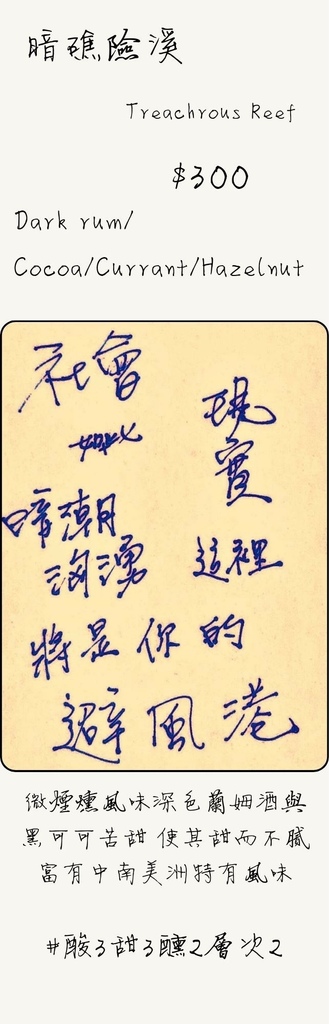 暗礁險溪
Treachrous Reef
$300
Dark rum/
Cocoa/Currant/Hazelnut
社會
如此
現
實
暗潮
洶湧
這裡
將是你的
避風港
微煙燻風味深色蘭姆酒與
黑可可苦甜使其甜而不膩
富有中南美洲特有風味
#酸3甜3醺2層次2